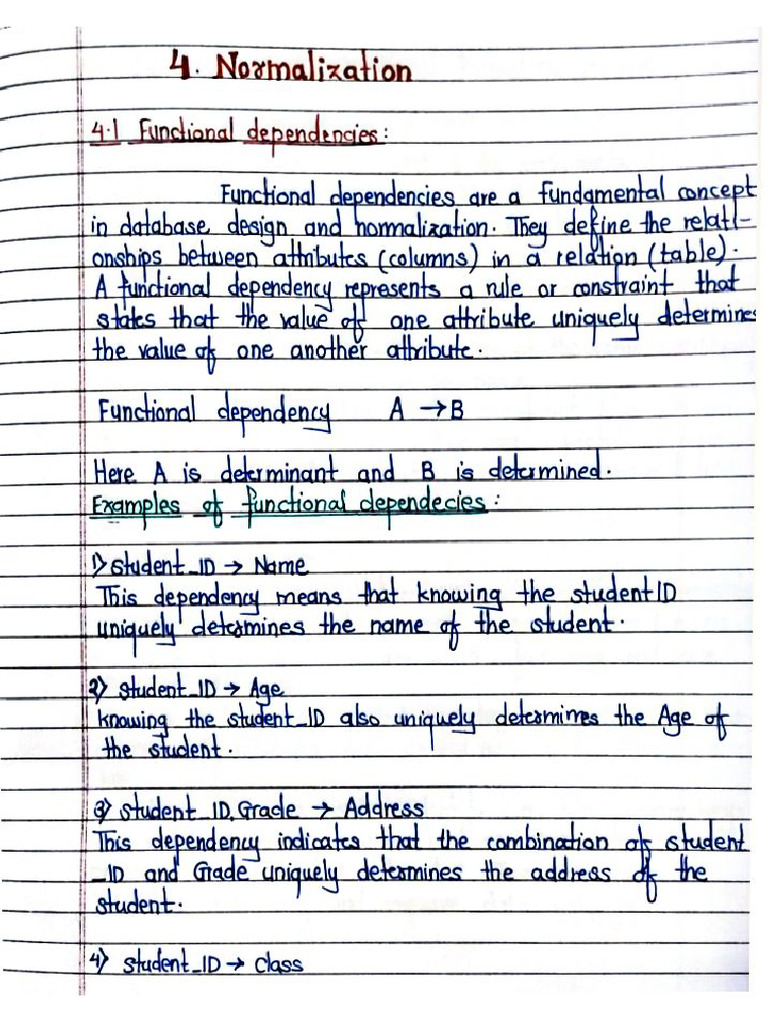 4. Normalization
4.1 Functional dependencies:
Functional dependencies are a fundamental concept
in database design and normalization. They define the relati-
onships between attributes (columns) in a relation (table).
A functional dependency represents a rule or constraint that
states that the value of one attribute uniquely determines
the value of one another attribute.
Functional dependency A → B
Here A is determinant and B is determined.
Examples of functional dependecies:
1) student_ID → Name
This dependency means that knowing the student ID
uniquely determines the name of the student.
2) student_ID → Age
knowing the student_ID also uniquely determines the Age of
the student.
3) student_ID, Grade → Address
This dependency indicates that the combination of student
_ID and Grade uniquely determines the address of the
student.
4) student_ID → class